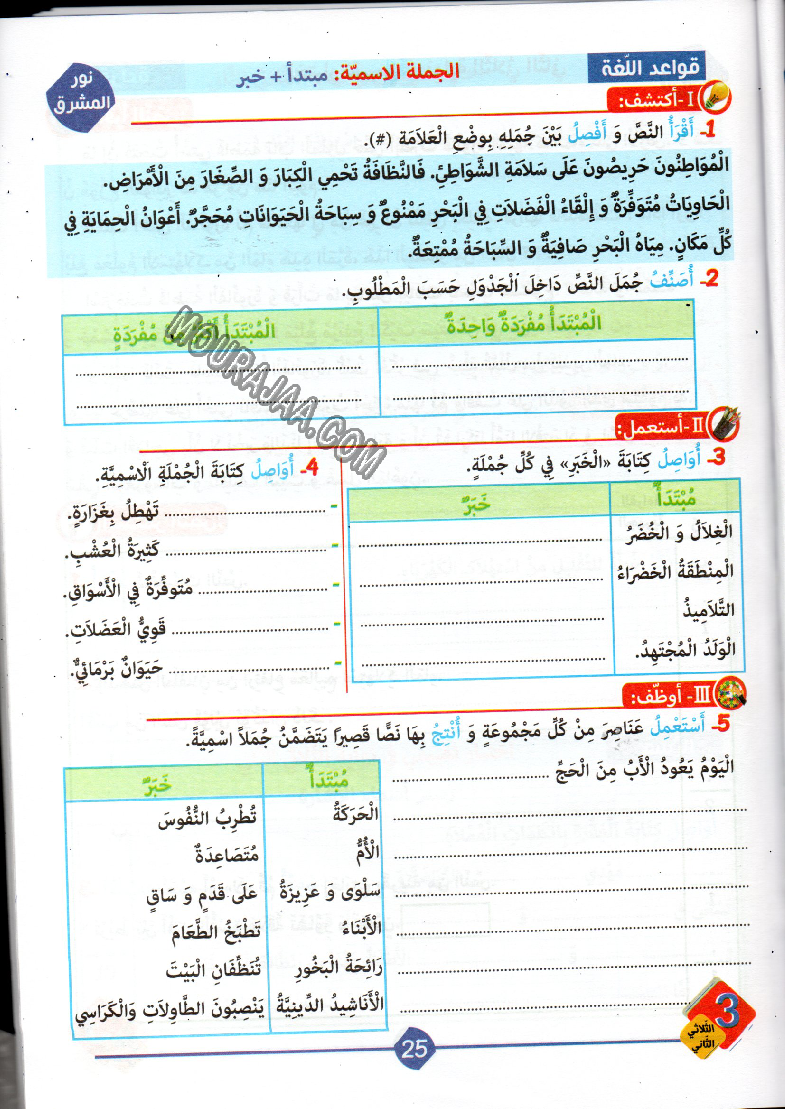 قواعد اللّغة
الجملة الاسميّة: مبتدأ + خبر
نور
المشرق
I- أكتشف:
1- أَقْرَأُ النَّصَّ وَ أَفْصِلُ بَيْنَ جُمَلِهِ بِوضْعِ الْعَلاَمَة (#).
الْمُوَاطِنُونَ حَرِيصُونَ عَلَى سَلاَمَةِ الشَّوَاطِئِ. فَالنَّظَافَةُ تَحْمِي الْكِبَارَ وَ الصِّغَارَ مِنَ الْأَمْرَاضِ.
الْحَاوِيَاتُ مُتَوَفِّرَةٌ وَ إِلْقَاءُ الْفَضَلاَتِ فِي الْبَحْرِ مَمْنُوعٌ وَ سِبَاحَةُ الْحَيَوَانَاتِ مُحَجَّرٌ. أَعْوَانُ الْحِمَايَةِ فِي
كُلِّ مَكَانٍ. مِيَاهُ الْبَحْرِ صَافِيَةٌ وَ السِّبَاحَةُ مُمْتِعَةٌ.
2- أُصَنِّفُ جُمَلَ النَّصِّ دَاخِلَ الْجَدْوَلِ حَسَبَ الْمَطْلُوبِ.
الْمُبْتَدَأُ مُفْرَدَةٌ وَاحِدَةٌ
الْمُبْتَدَأُ مُفْرَدَةٍ
MOURAJAA.COM
II- أستعمل:
3- أُوَاصِلُ كِتَابَةَ «الْخَبَرِ» فِي كُلِّ جُمْلَةٍ.
مُبْتَدَأٌ خَبَرٌ
الْغِلاَلُ وَ الْخُضَرُ ........
الْمِنْطَقَةُ الْخَضْرَاءُ ........
التَّلاَمِيذُ ........
الْوَلَدُ الْمُجْتَهِدُ. ........
4- أُوَاصِلُ كِتَابَةَ الْجُمْلَةِ الْاسْمِيَّةِ.
- ........ تَهْطِلُ بِغَزَارَةٍ.
- ........ كَثِيرَةُ الْعُشْبِ.
- ........ مُتَوفِّرَةٌ فِي الْأَسْوَاقِ.
- ........ قَوِيُّ الْعَضَلاَتِ.
- ........ حَيَوَانٌ بَرْمَائِيٌّ.
III- أوظّف:
5- أَسْتَعْمِلُ عَنَاصِرَ مِنْ كُلِّ مَجْمُوعَةٍ وَ أُنْتِجُ بِهَا نَصًّا قَصِيرًا يَتَضَمَّنُ جُمَلاً اسْمِيَّةً.
الْيَوْمُ يَعُودُ الْأَبُ مِنَ الْحَجِّ ........
مُبْتَدَأٌ خَبَرٌ
الْحَرَكَةُ تُطْرِبُ النُّفُوسَ
الْأُمُّ مُتَصَاعِدَةٌ
سَلْوَى وَ عَزِيزَةُ عَلَى قَدَمٍ وَ سَاقٍ
الْأَبْنَاءُ تَطْبَخُ الطَّعَامَ
رَائِحَةُ الْبَخُورِ تُنَظِّفَانِ الْبَيْتَ
الْأَنَاشِيدُ الدِّينِيَّةُ يَنْصِبُونَ الطَّاوِلاَتِ وَالْكَرَاسِي
3
الثّلاثي
الثّاني
25